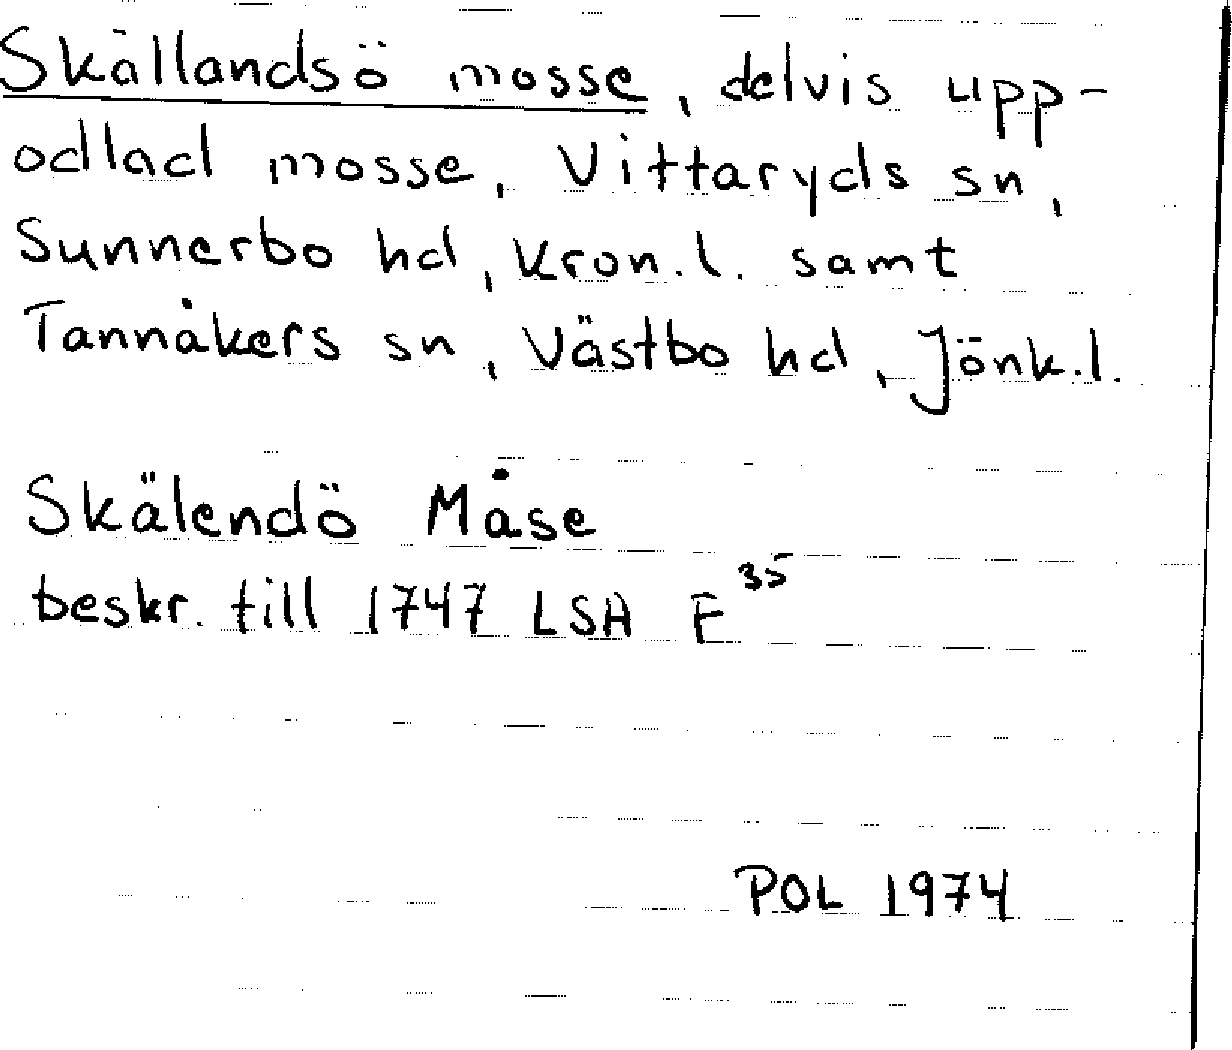 Skällandsö mosse, delvis upp-
odlad mosse, Vittaryds sn,
Sunnerbo hd, Kron.l. samt
Tannåkers sn, Västbo hd, Jönk.l.
Skälendö Måse
beskr. till 1747 LSA F³⁵
POL 1974